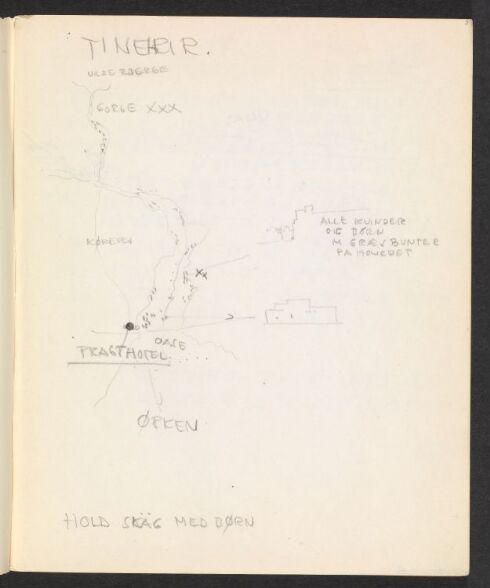 TINEHRIR.
VILDE BJERGE
GORGE XXX
ALLE KVINDER
OG BØRN
M GRÆSBUNTER
PÅ HOVEDET
XX
OASE
PRAGTHOTEL
ØRKEN
HOLD SKÆG MED BØRN